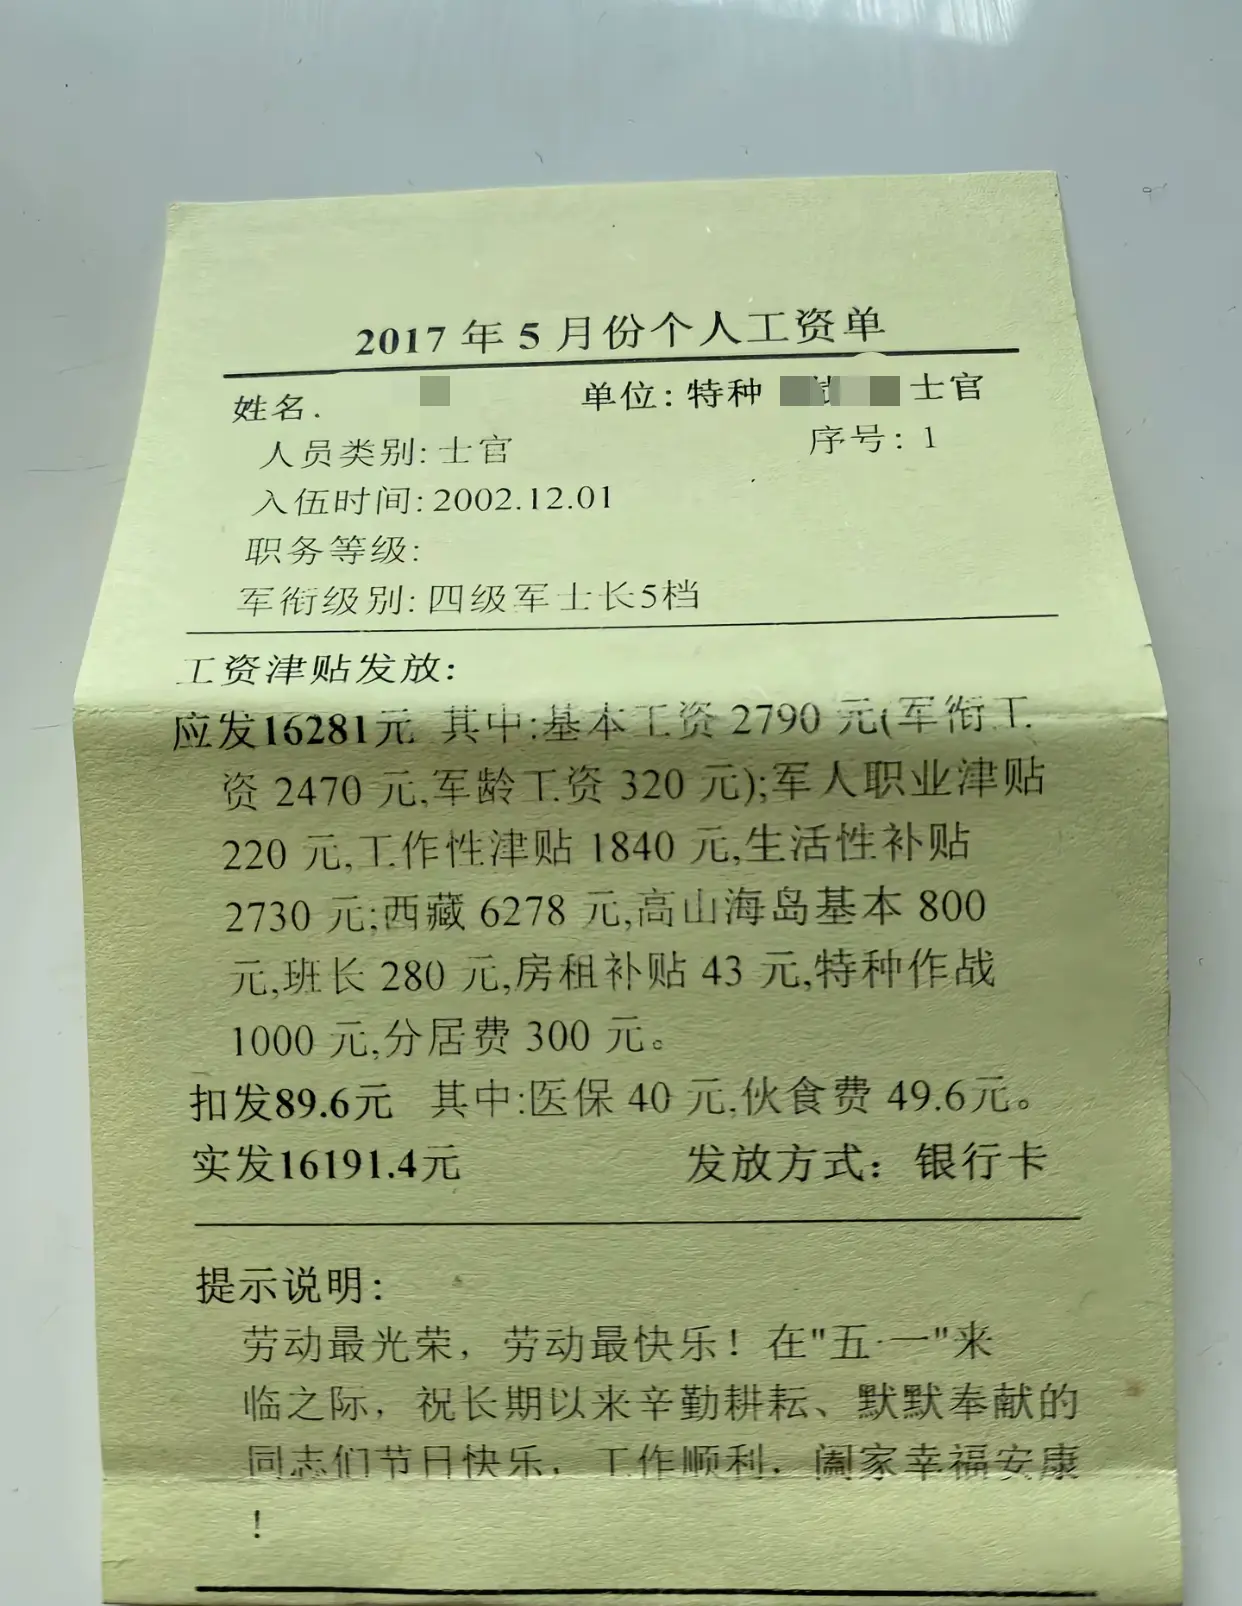 2017 年 5 月份个人工资单
姓名. 单位: 特种 士官
人员类别: 士官 序号: 1
入伍时间: 2002.12.01
职务等级:
军衔级别: 四级军士长5档
工资津贴发放:
应发16281元 其中:基本工资 2790 元(军衔工
资 2470 元,军龄工资 320 元);军人职业津贴
220 元,工作性津贴 1840 元,生活性补贴
2730 元;西藏 6278 元,高山海岛基本 800
元,班长 280 元,房租补贴 43 元,特种作战
1000 元,分居费 300 元。
扣发89.6元 其中:医保 40 元,伙食费 49.6元。
实发16191.4元 发放方式: 银行卡
提示说明:
劳动最光荣, 劳动最快乐! 在"五·一"来
临之际, 祝长期以来辛勤耕耘、默默奉献的
同志们节日快乐, 工作顺利, 阖家幸福安康
!